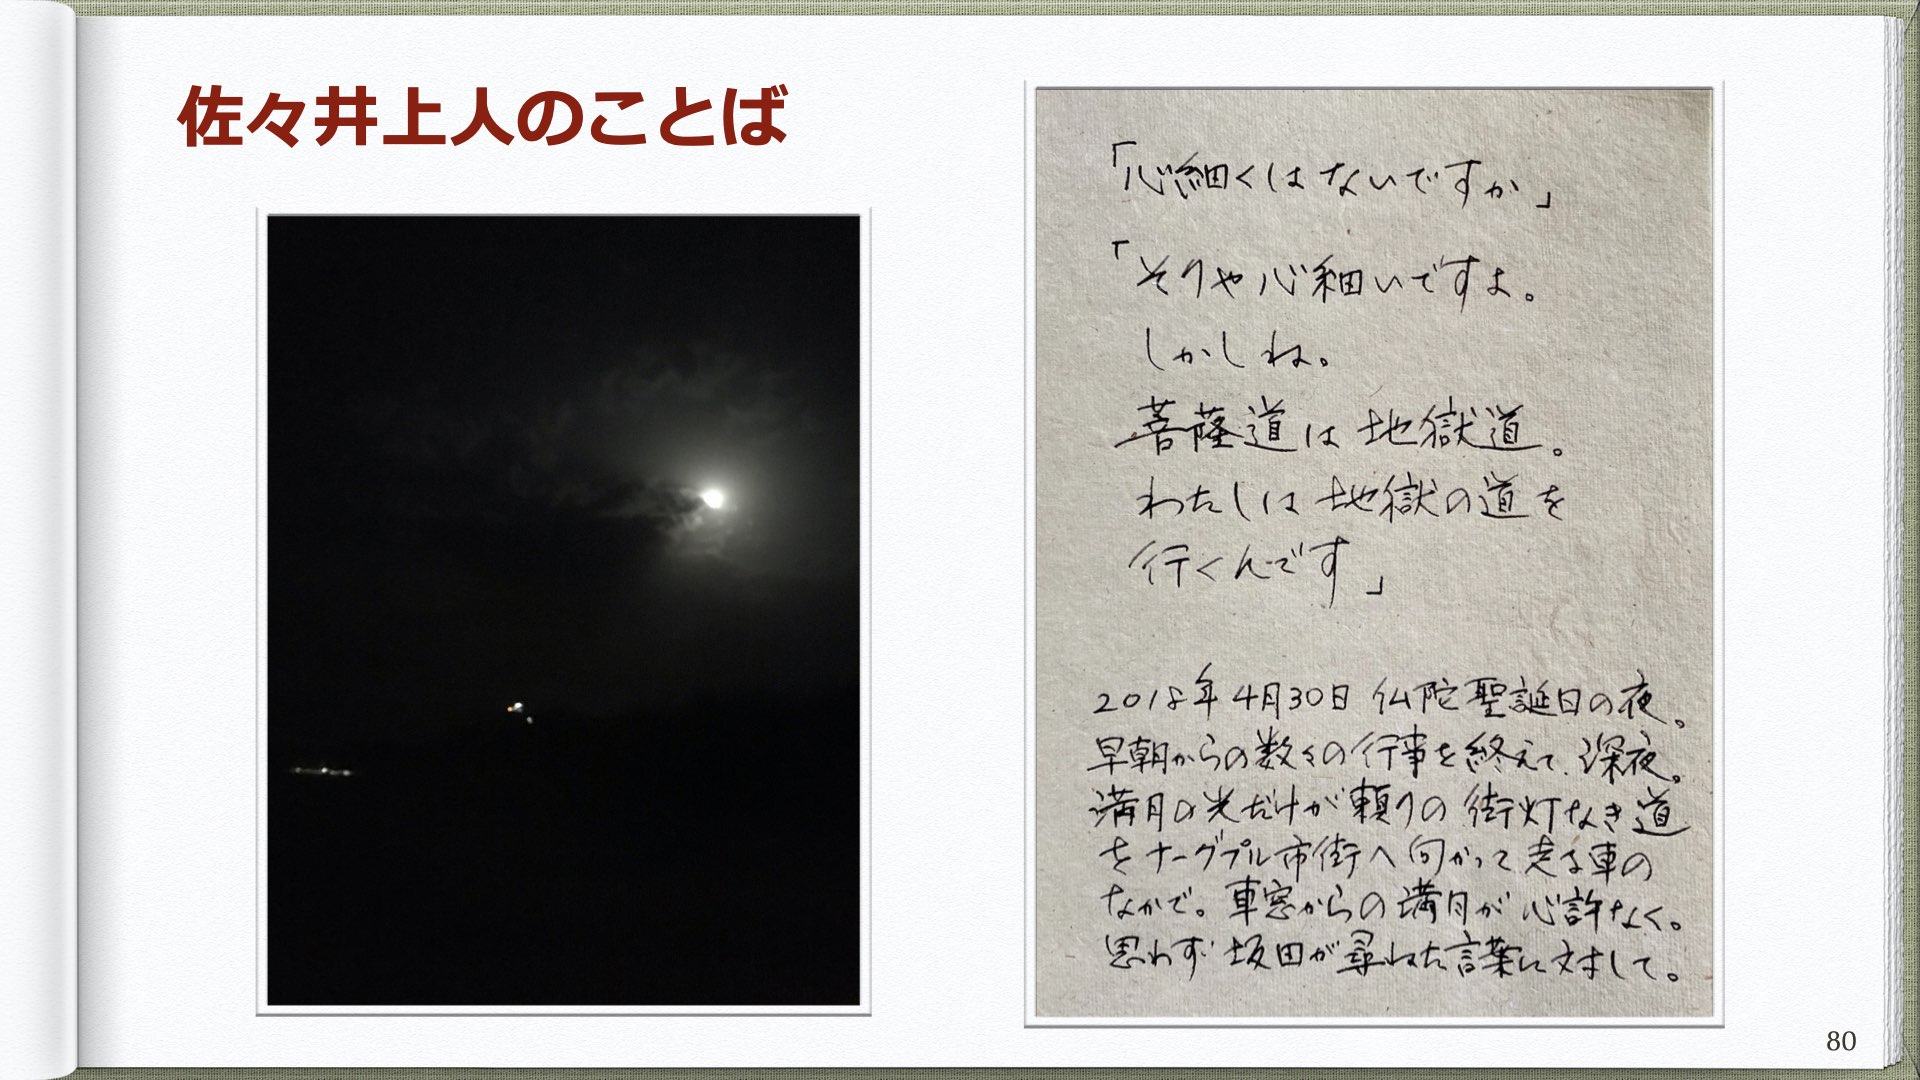 佐々井上人のことば
「心細くはないですか」
「そりゃ心細いですよ。
しかしね。
菩薩道は地獄道。
わたしは地獄の道を
行くんです」
2018年4月30日 仏陀聖誕日の夜。
早朝からの数々の行事を終えて、深夜。
満月の光だけが頼りの街灯なき道
をナーグプル市街へ向かって走る車の
なかで。車窓からの満月が心許なく。
思わず坂田が尋ねた言葉に対して。
80